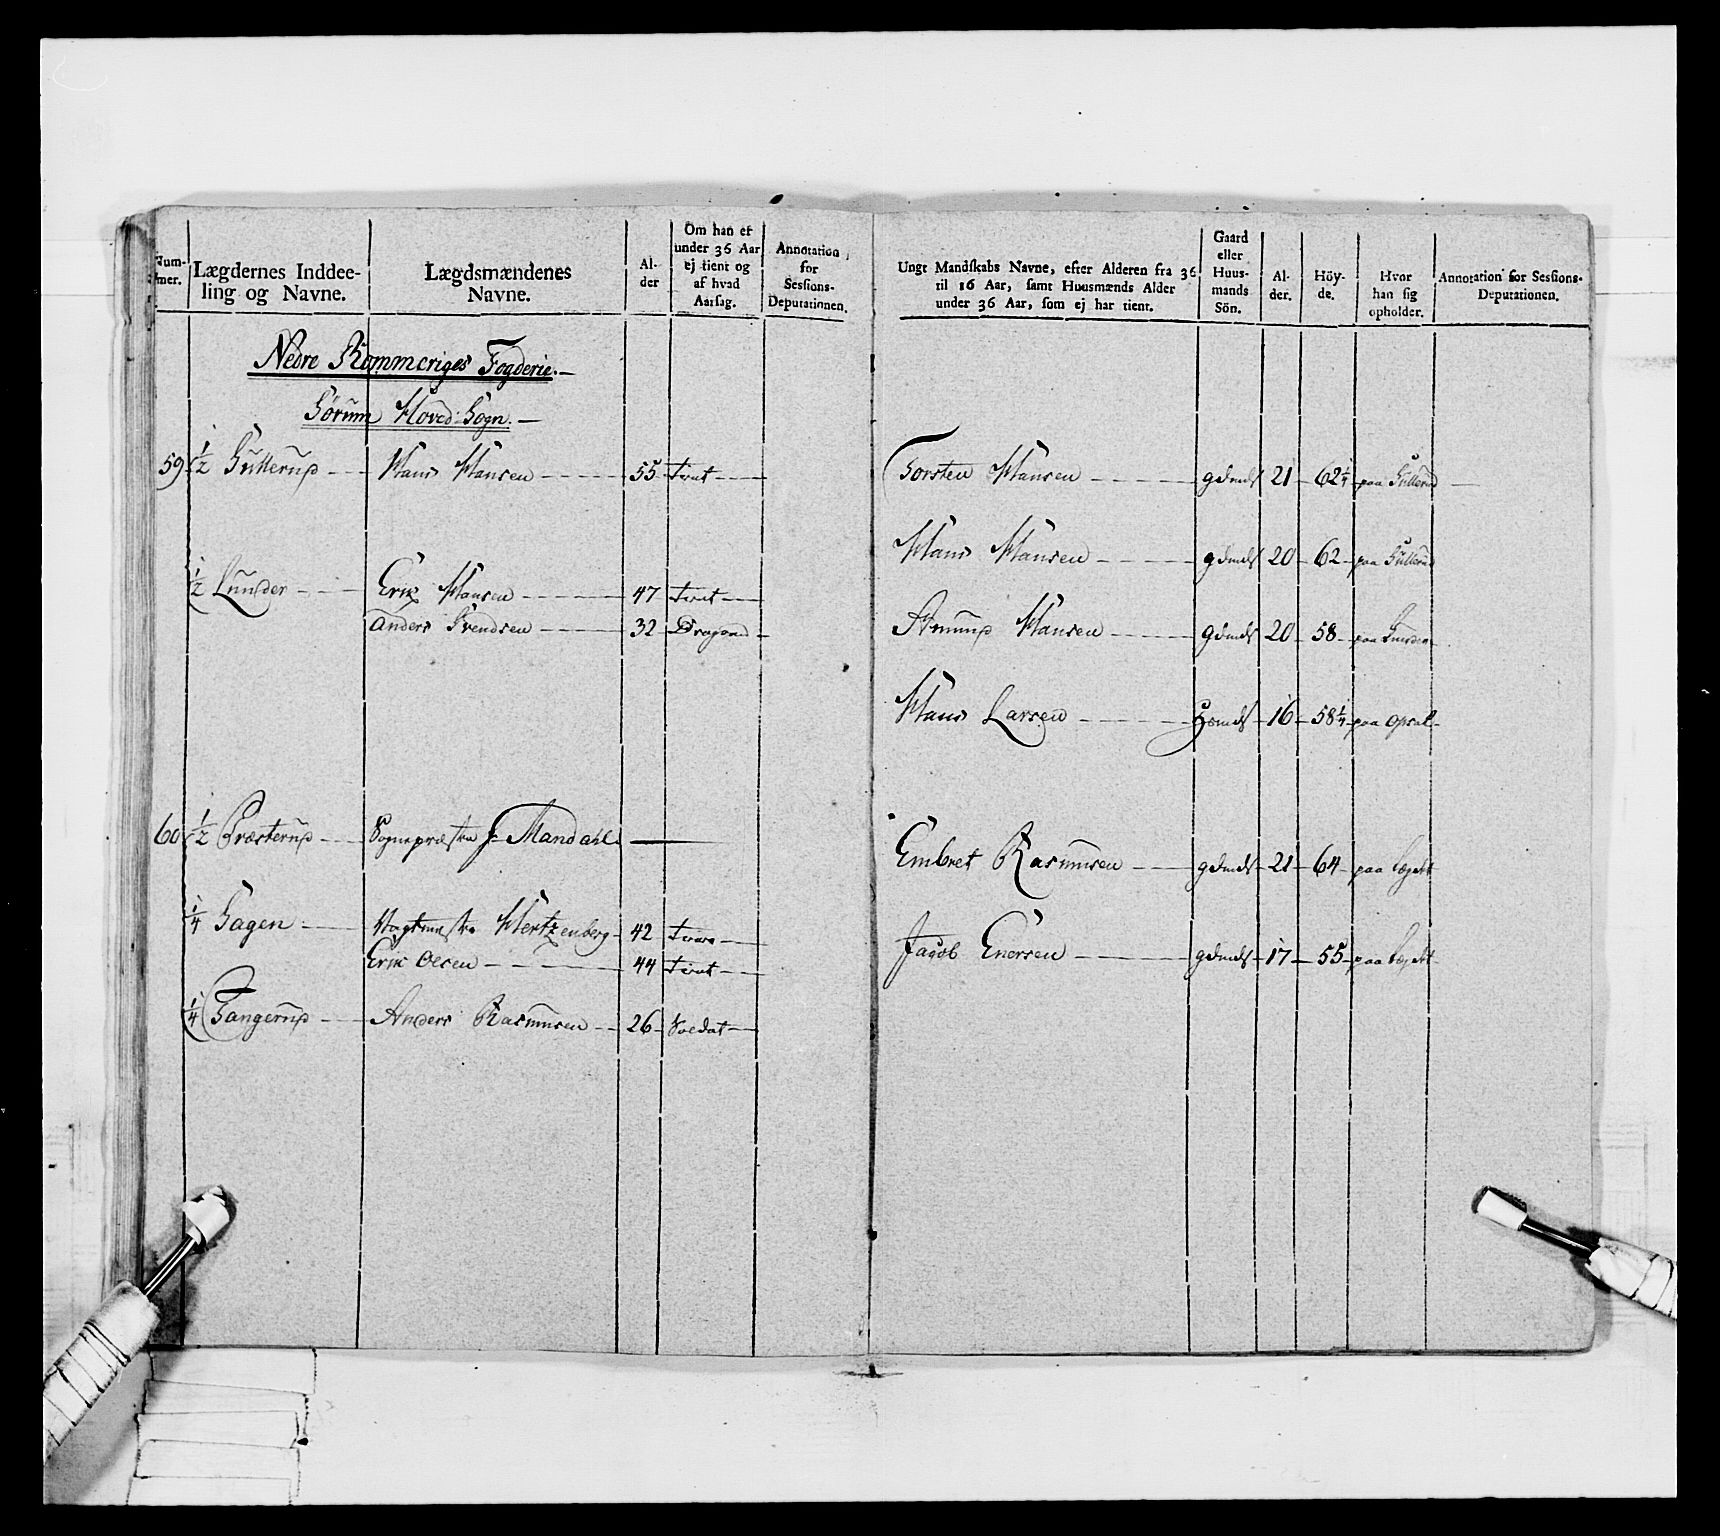 Num-
mer.
Lægdernes Inddee-
ling og Navne.
Lægdsmændenes
Navne.
Al-
der
Om han er
under 36 Aar
ej tient og
af hvad
Aarsag.
Annotation
for
Sessions-
Deputationen.
Ungt Mandskabs Navne, efter Alderen fra 36
til 16 Aar, samt Huusmænds Alder
under 36 Aar, som ej har tient.
Gaard
eller
Huus-
mands
Sön.
Al-
der.
Höy-
de.
Hvor
han sig
opholder.
Annotation for Sessions-
Deputationen.
Nedre Rommeriges Fogderie.
Sörum Hoved-Sogn.
59 1/2 Gullerud Hans Hansen 55 tient
Torsten Hansen gdmds 21 62 1/4 paa Gullerud
Hans Hansen gdmds 20 62 paa Gullerud
1/2 Lunder Erik Hansen 47 tient
Anders Svendsen 32 Dragon
Amund Hansen gdmds 20 58 paa Lunder
Hans Larsen Hsmds 16 58 1/4 paa Opsal
60 1/2 Præsterud Sognepræsten J Mandahl
Embret Rasmusen gdmds 21 64 paa Lægdet
1/4 Hertzenberg 42
Erik Olsen 44 tient
Jacob Enersen gdmds 17 55 paa Lægdet
1/4 Tangerud Anders Rasmusen 26 Soldat